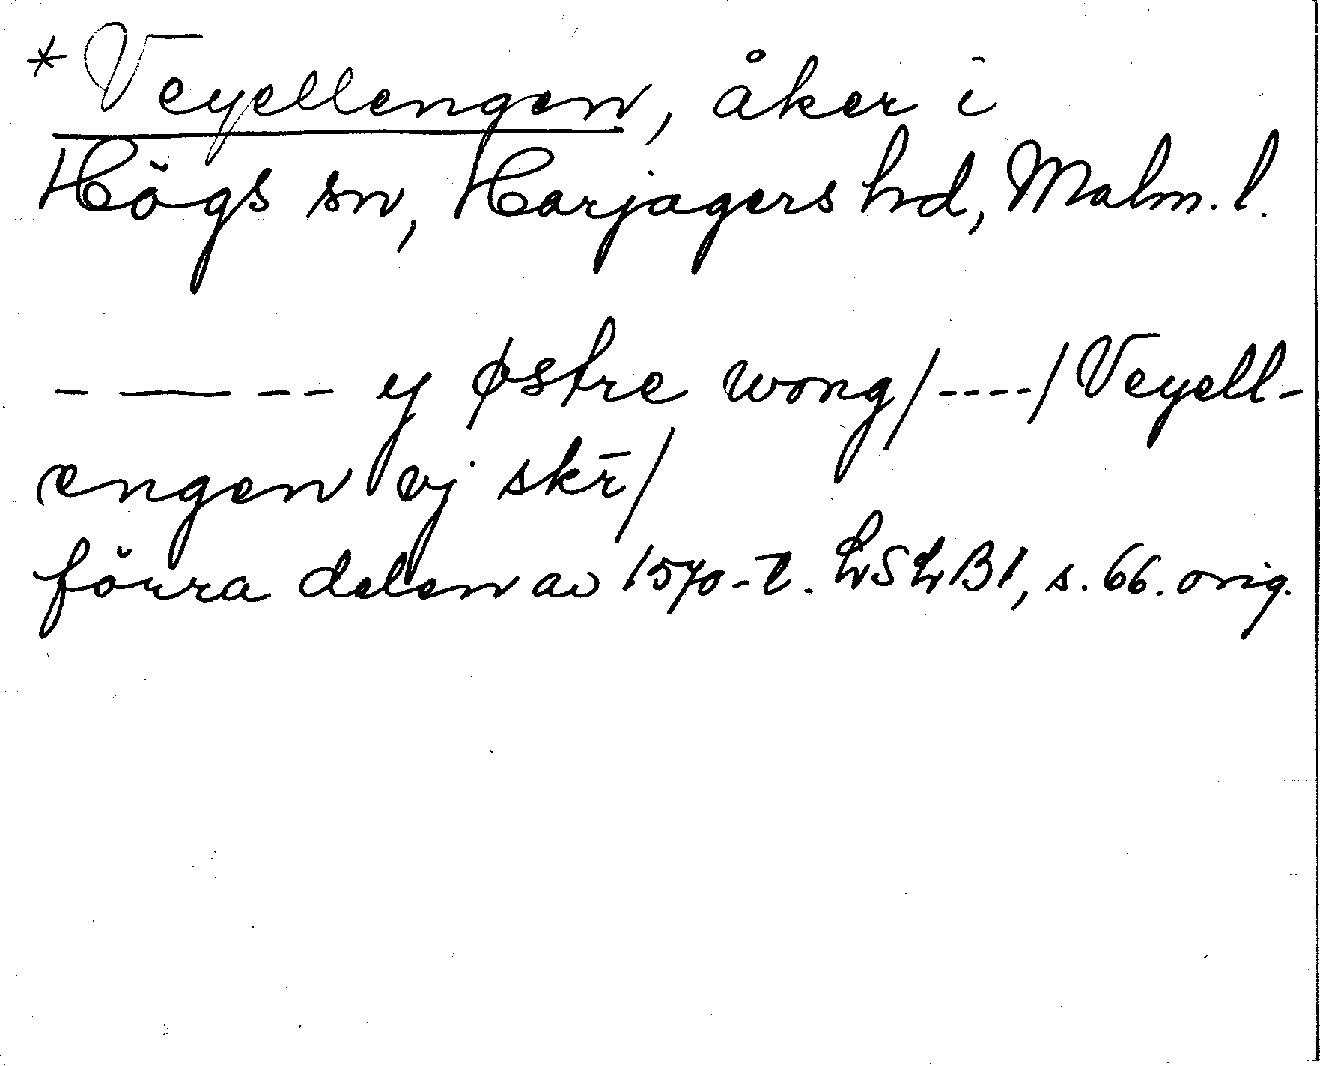 * Veyellengen, åker i
Högs sn, Harjagers hd, Malm. l.
- — - - y østre wong/----/Veyell-
engen vj skr̄/
förra delen av 1570-t. LSLB1, s. 66. orig.